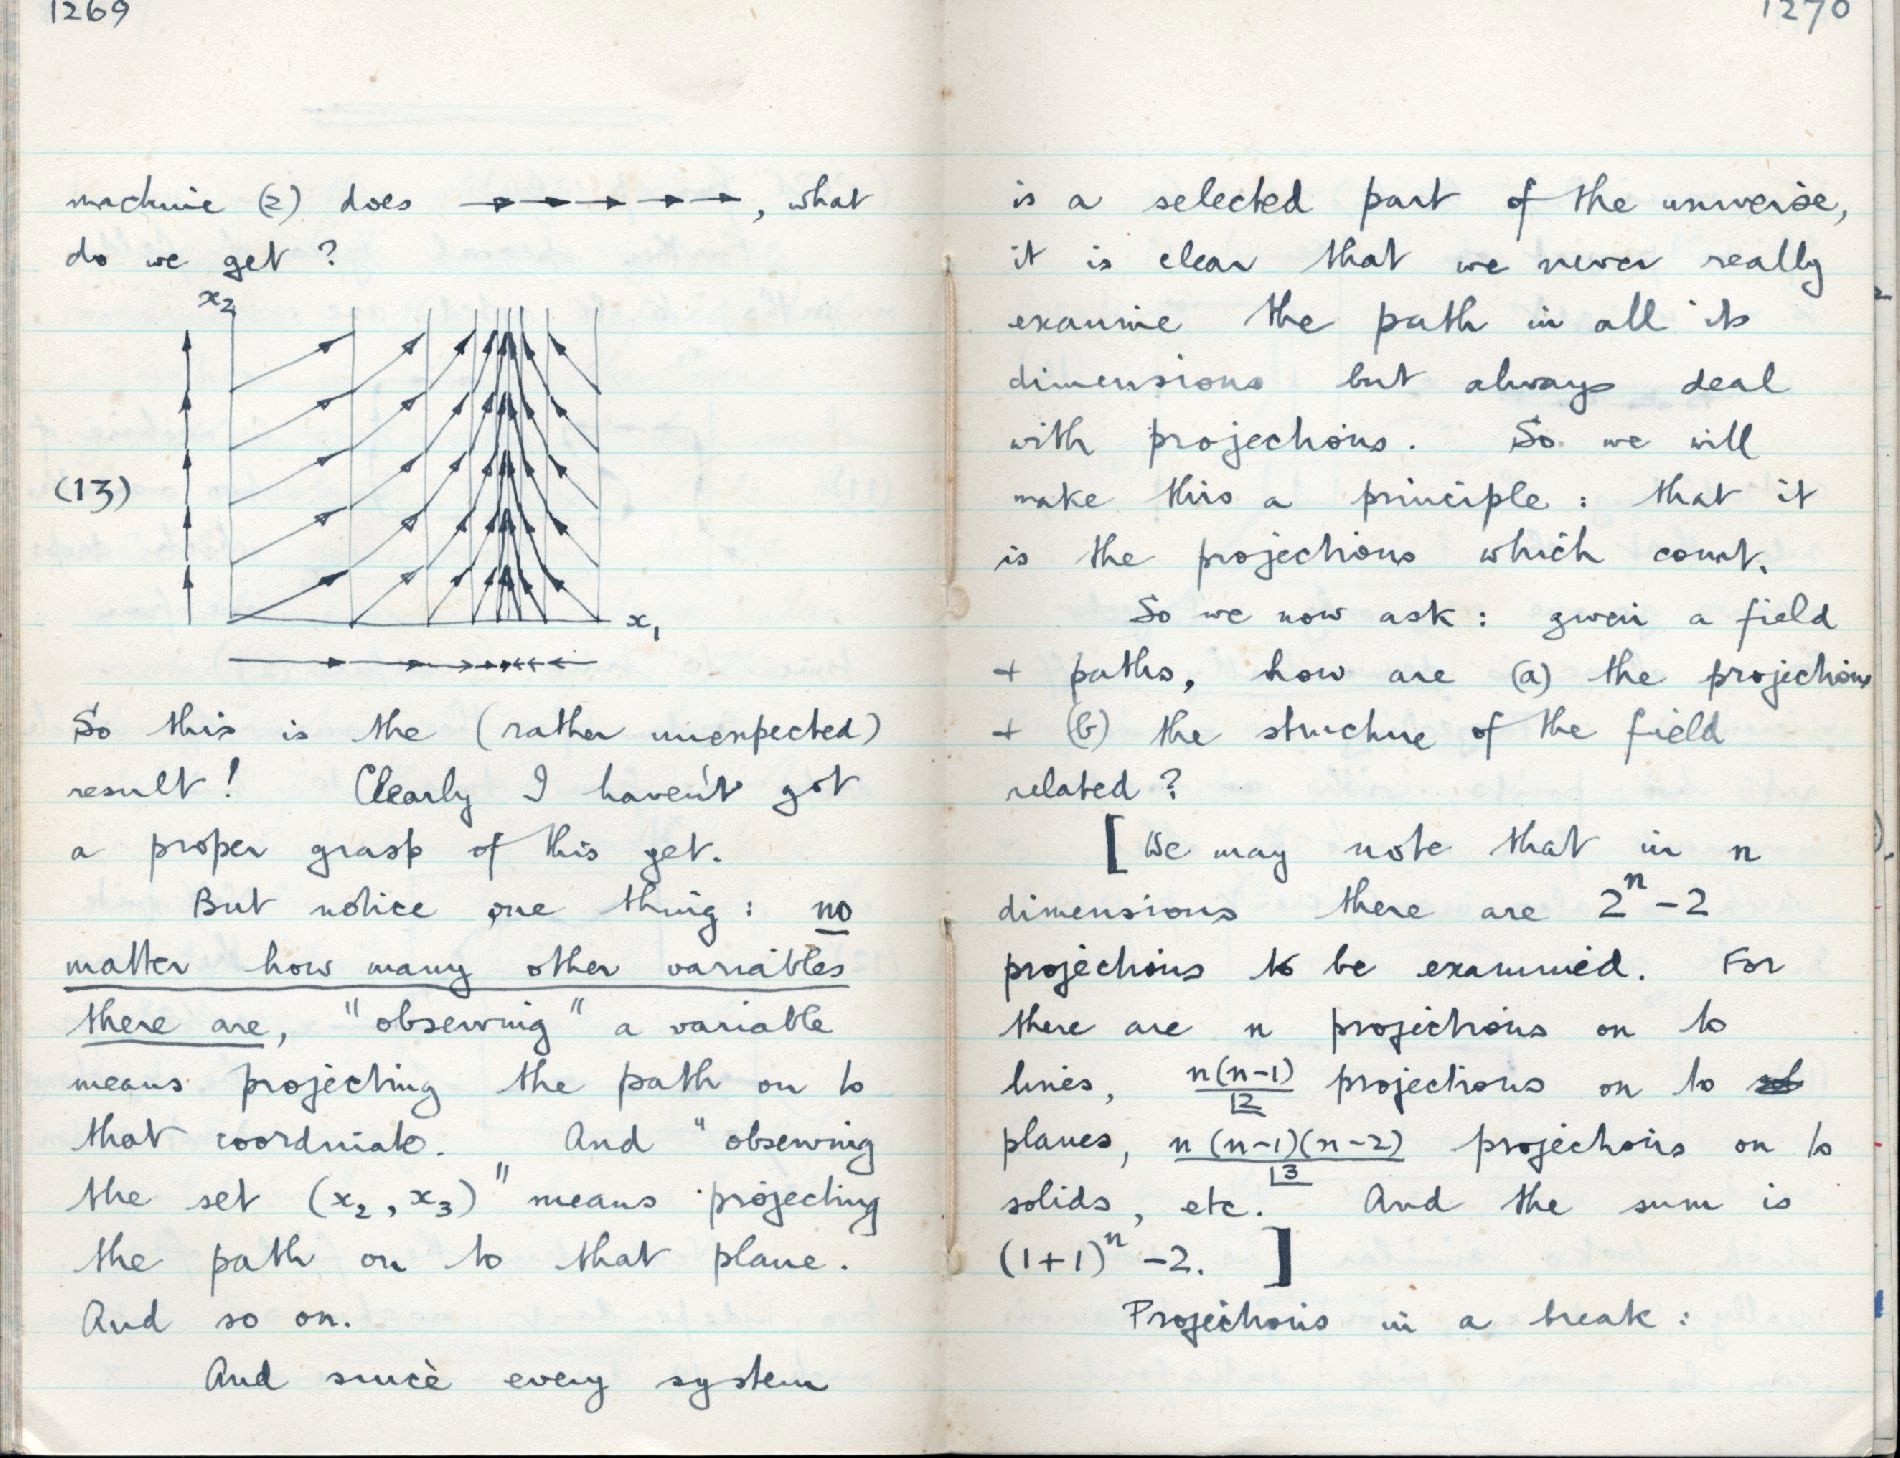 1269
machine (2) does →→→→→, what
do we get?
x₂
(13)
x₁
So this is the (rather unexpected)
result! Clearly I haven't got
a proper grasp of this yet.
But notice one thing: no
matter how many other variables
there are, "observing" a variable
means projecting the path on to
that coordinate. And "observing
the set (x₂, x₃)" means projecting
the path on to that plane.
And so on.
And since every system
1270
is a selected part of the universe,
it is clear that we never really
examine the path in all its
dimensions but always deal
with projections. So we will
make this a principle: that it
is the projections which count.
So we now ask: given a field
+ paths, how are (a) the projections
+ (b) the structure of the field
related?
[We may note that in n
dimensions there are 2ⁿ-2
projections to be examined. For
there are n projections on to
lines, n(n-1)/|2 projections on to
planes, n(n-1)(n-2)/|3 projections on to
solids, etc. And the sum is
(1+1)ⁿ-2. ]
Projections in a break: